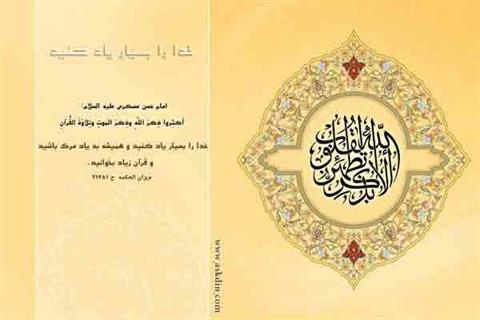 خدا را بسیار یاد کنید
امام حسن عسکری علیه السلام:
أکثِروا ذِکرَ اللهِ وذِکرَ المَوتِ وتِلاوَةَ القُرآنِ
خدا را بسیار یاد کنید و همیشه به یاد مرگ باشید
و قرآن زیاد بخوانید.
میزان الحکمه ح ۲۱۳۸۱
ألا بذکر الله تطمئن القلوب
www.askdin.com